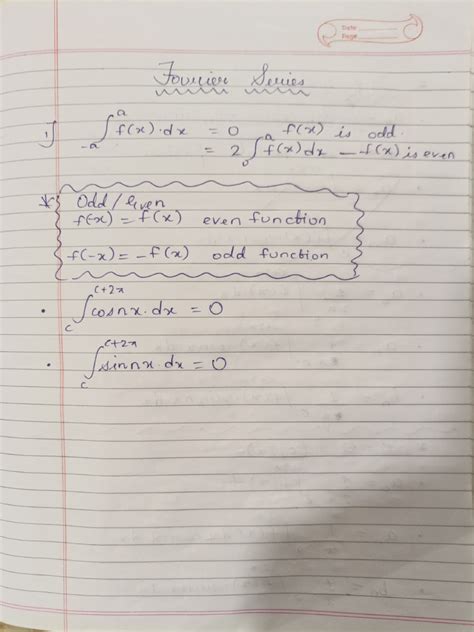 Date
Page
Fourier Series
1) ∫₋ₐᵃ f(x).dx = 0 f(x) is odd.
= 2 ∫₀ᵃ f(x) dx — f(x) is even
* Odd / Even
f(-x) = f(x) even function
f(-x) = -f(x) odd function
• ∫_c^{c+2π} cosnx.dx = 0
• ∫_c^{c+2π} sinnx.dx = 0